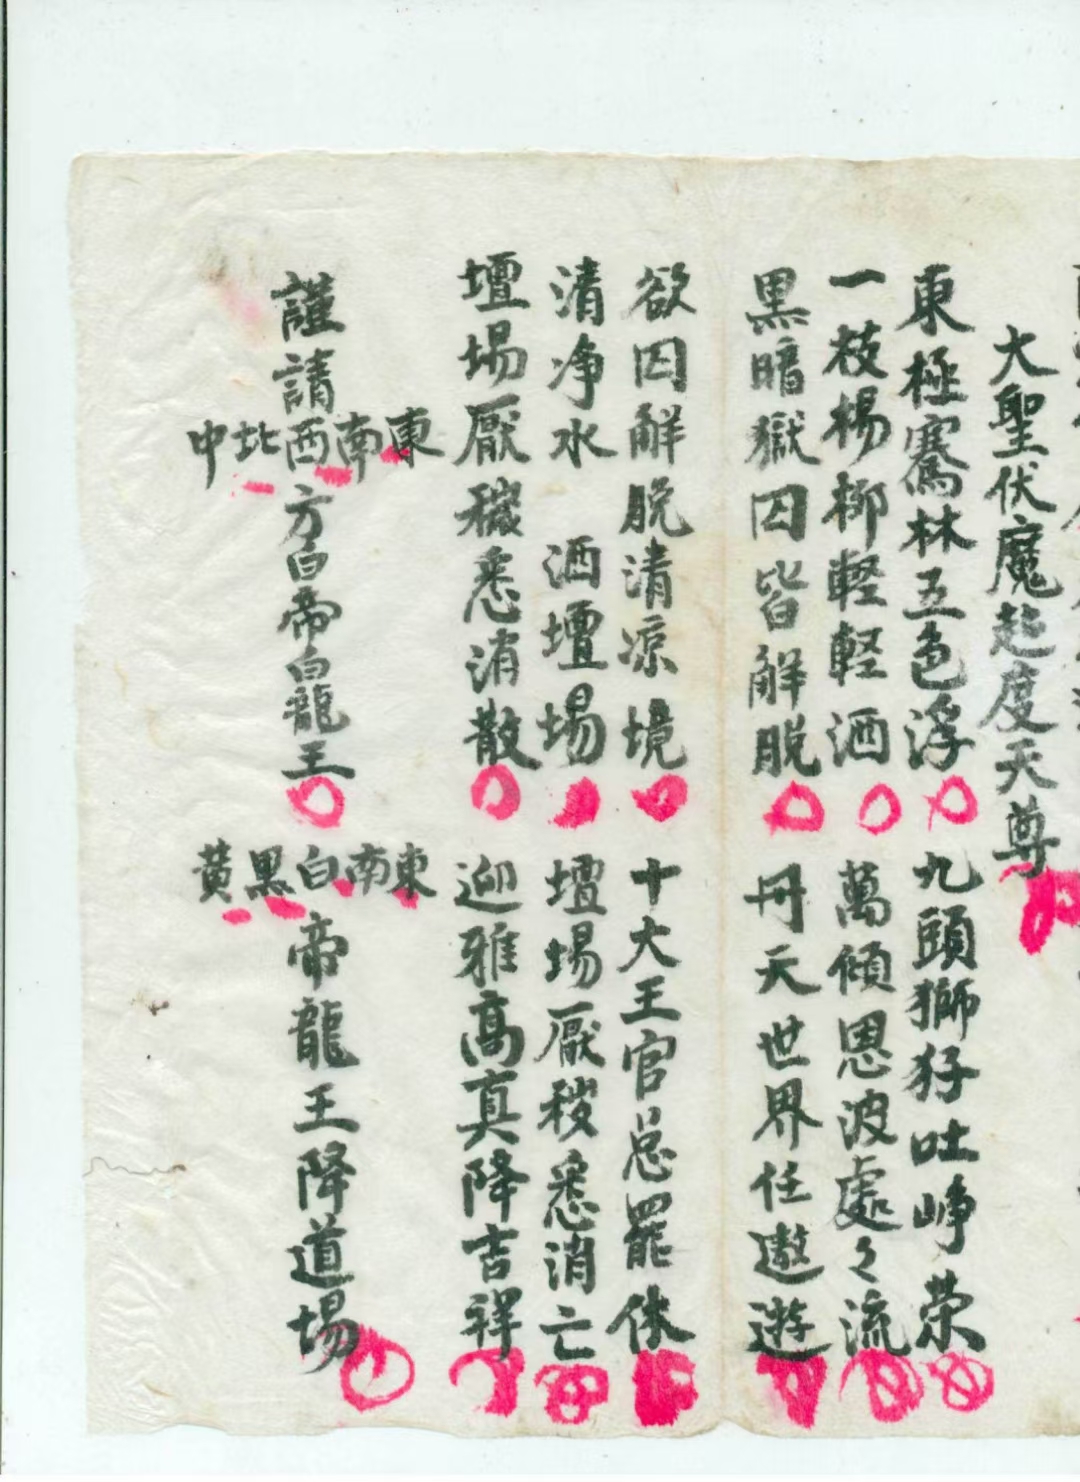 大聖伏魔起度天尊
東極騫林五色浮 九頭獅犼吐崢荣
一枝楊柳軽軽洒 萬傾恩波處々流
黒暗獄囚皆解脱 丹天世界任遨遊
欲囚解脱清凉境 十大王官总罷休
清净水 洒壇場 壇場厭秽悉消亡
壇場厭穢悉消散 迎雅高真降吉祥
謹請 東南西北中 方白帝白龍王 東南白黒黄 帝龍王降道場